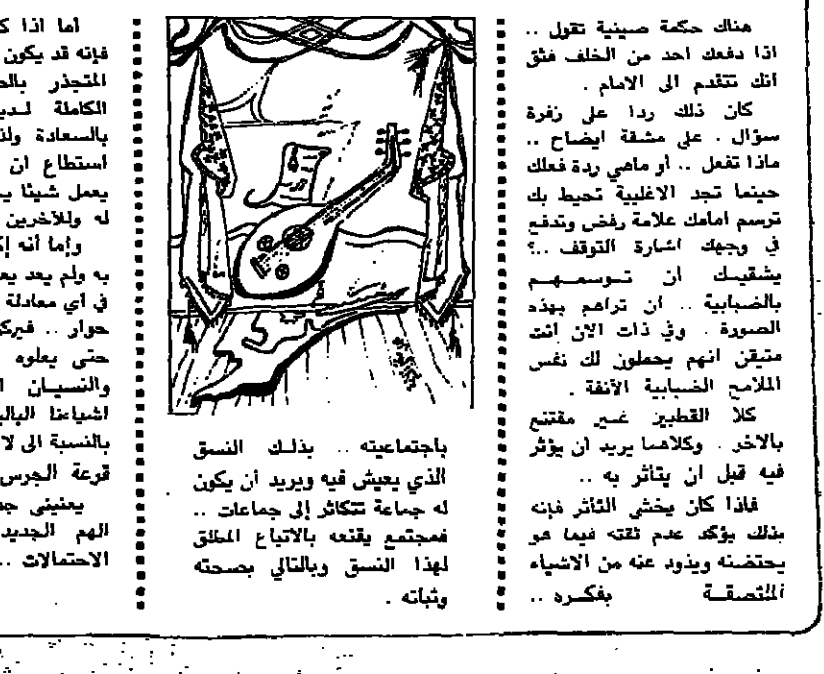 هناك حكمة صينية تقول ..
اذا دفعك احد من الخلف فثق
أنك تتقدم الى الامام .
كان ذلك ردا على زفرة
سؤال . على مشقة ايضاح ..
ماذا تفعل .. أو ماهي ردة فعلك
حينما تجد الاغلبية تحيط بك
ترسم امامك علامة رفض وتدفع
في وجهك اشارة التوقف ..؟
يشقيك ان توسمهم
بالضبابية .. ان تراهم بهذه
الصورة . وفي ذات الآن انت
متيقن انهم يحملون لك نفس
الملامح الضبابية الآنفة .
كلا القطبين غير مقتنع
بالاخر . وكلاهما يريد ان يؤثر
فيه قبل ان يتأثر به ..
فاذا كان يخشى التأثر فإنه
بذلك يؤكد عدم ثقته فيما هو
يحتضنه ويذود عنه من الاشياء
الملتصقة بفكره ..
باجتماعيته .. بذلك النسق
الذي يعيش فيه ويريد أن يكون
له جماعة تتكاثر إلى جماعات ..
فمجتمع يقنعه بالاتباع المطلق
لهذا النسق وبالتالي بصحته
وثباته .
أما اذا ك
فإنه قد يكون
المتجذر بالح
الكاملة لدي
بالسعادة ولذ
استطاع ان
يعمل شيئا ي
له وللآخرين
وإما أنه إ
به ولم يعد يع
في أي معادلة
حوار .. فيرك
حتى يعلوه
والنسيان ا
اشياءنا البال
بالنسبة الى لا
قرعة الجرس
يعنيني جد
الهم الجديد
الاحتمالات ..